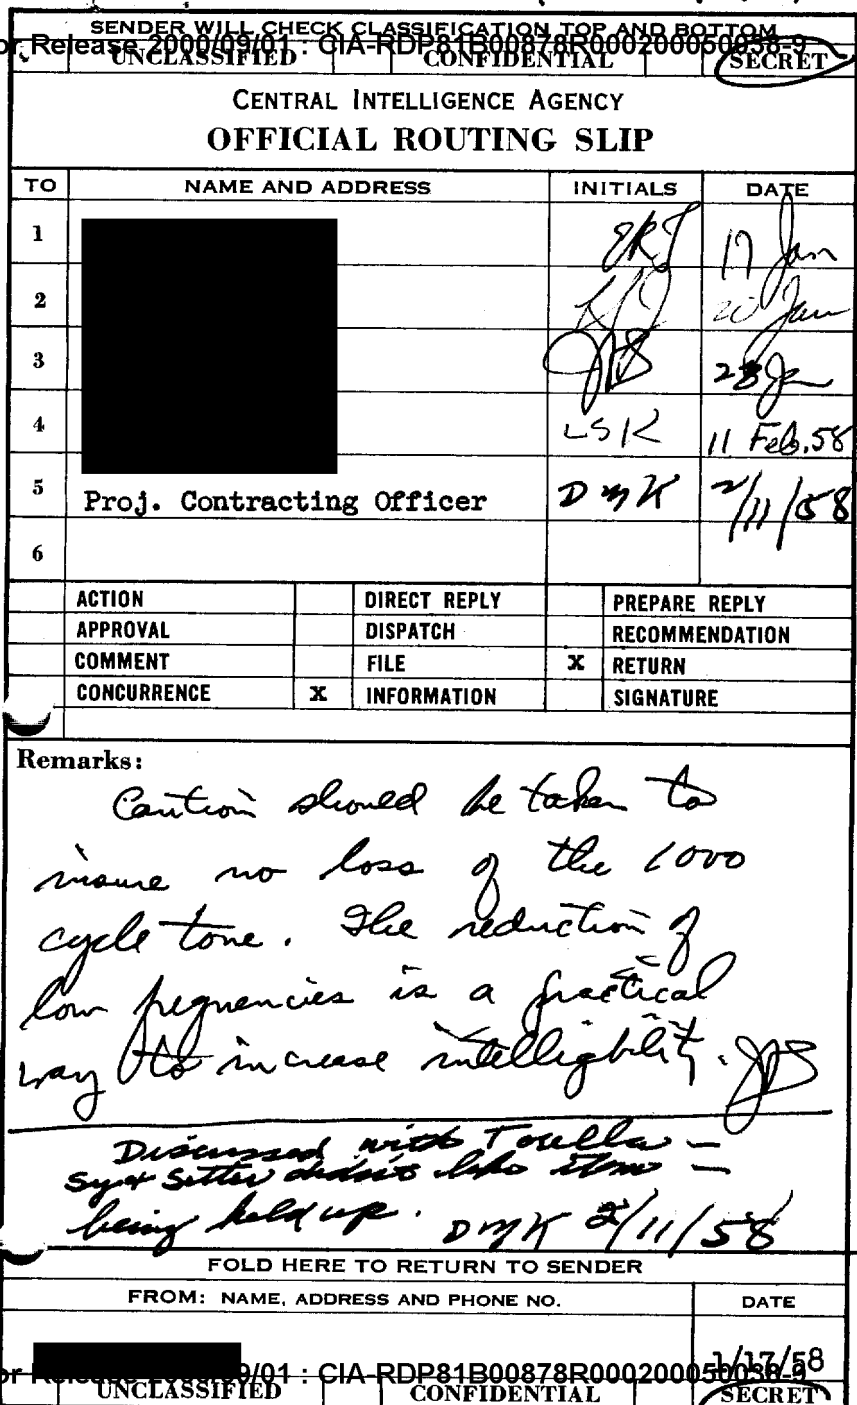 SENDER WILL CHECK CLASSIFICATION TOP AND BOTTOM
or Release 2000/09/01 : CIA-RDP81B00878R000200050038-9
UNCLASSIFIED CONFIDENTIAL SECRET
CENTRAL INTELLIGENCE AGENCY
OFFICIAL ROUTING SLIP
TO NAME AND ADDRESS INITIALS DATE
1 17 Jan
2 20 Jan
3 JPS 28 Jan
4 LSK 11 Feb. 58
5 Proj. Contracting Officer DMK 2/11/58
6
ACTION DIRECT REPLY PREPARE REPLY
APPROVAL DISPATCH RECOMMENDATION
COMMENT FILE X RETURN
CONCURRENCE X INFORMATION SIGNATURE
Remarks:
Caution should be taken to
insure no loss of the 1000
cycle tone. The reduction of
low frequencies is a practical
way to increase intelligibility. JPS
Discussed with Torella –
didn't like item –
being held up. DMK 2/11/58
FOLD HERE TO RETURN TO SENDER
FROM: NAME, ADDRESS AND PHONE NO. DATE
1/17/58
or Release 2000/09/01 : CIA-RDP81B00878R000200050038-9
UNCLASSIFIED CONFIDENTIAL SECRET